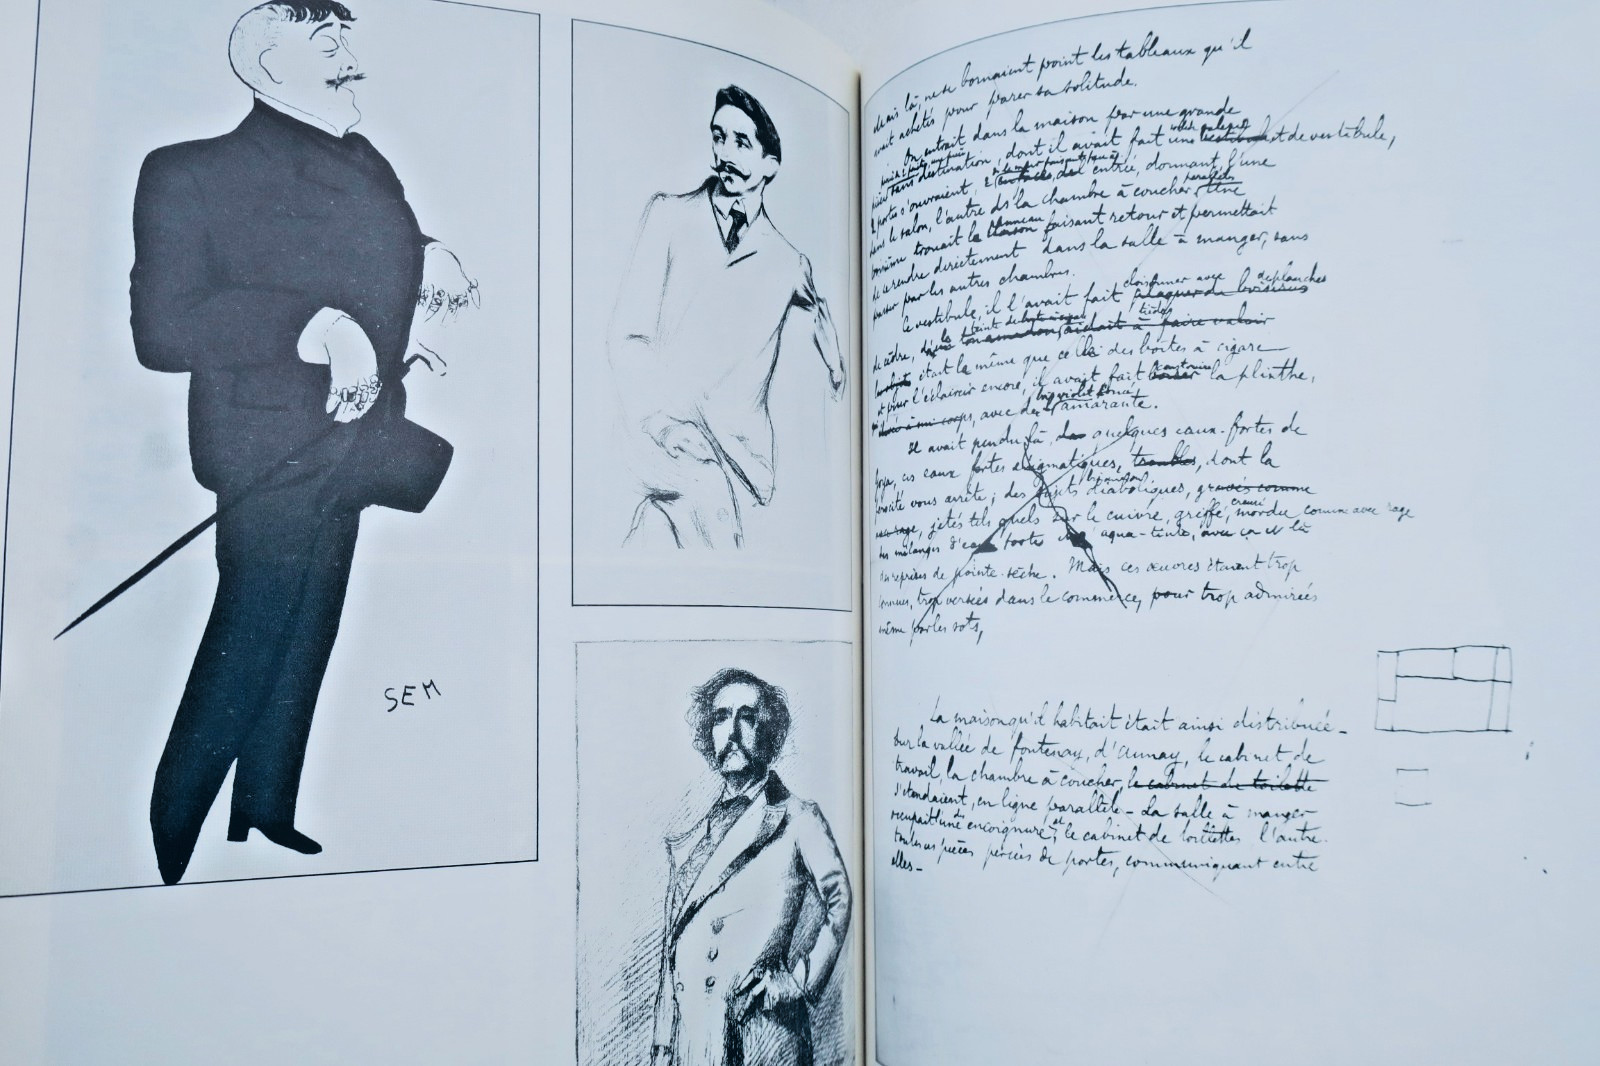 SEM
Mais là, ne se bornaient point les tableaux qu'il
avait achetés pour parer sa solitude.
On entrait dans la maison par une grande
pièce sans destination, dont il avait fait une et de vestibule,
2 portes s'ouvraient, entrée, donnant, l'une
dans le salon, l'autre ds la chambre à coucher, une
parallèle
troisième trouait le panneau faisant retour et permettait
de se rendre directement dans la salle à manger, sans
passer par les autres chambres.
le vestibule, il l'avait fait cloisonner avec des planches
de cèdre, teinte
était la même que celle des boîtes à cigare
et pour l'éclaircir encore, il avait fait construire la plinthe,
à mi-corps, avec de l'amarante.
violet foncé
Il avait pendu là, quelques eaux-fortes de
Goya, ces eaux fortes énigmatiques, troubles, dont la
vous arrête ; des sujets diaboliques, gravés comme
avec rage, jetés tels quels sur le cuivre, griffé, creusé, mordu comme avec rage
des mélanges d'eaux fortes et d'aqua-tinte, avec ça et là
des reprises de pointe-sèche. Mais ces œuvres étaient trop
connues, trop versées dans le commerce, pour trop admirées
même par les sots,
La maison qu'il habitait était ainsi distribuée –
Sur la vallée de fontenay, d'Aunay, le cabinet de
travail, la chambre à coucher, le cabinet de toilette
s'étendaient, en ligne parallèle – La salle à manger
occupait l'une des encoignures, et le cabinet de toilettes l'autre.
toutes ces pièces percées de portes, communiquant entre
elles –